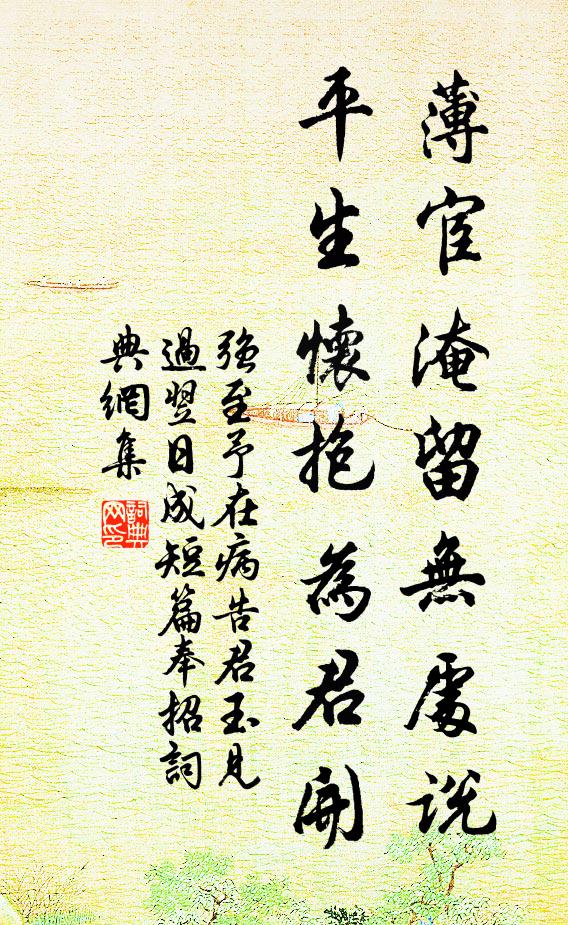 薄宦淹留無處說
平生懷抱為君開
強至予在病告君玉見
過翌日成短篇奉招詞
典網集
詞典網印